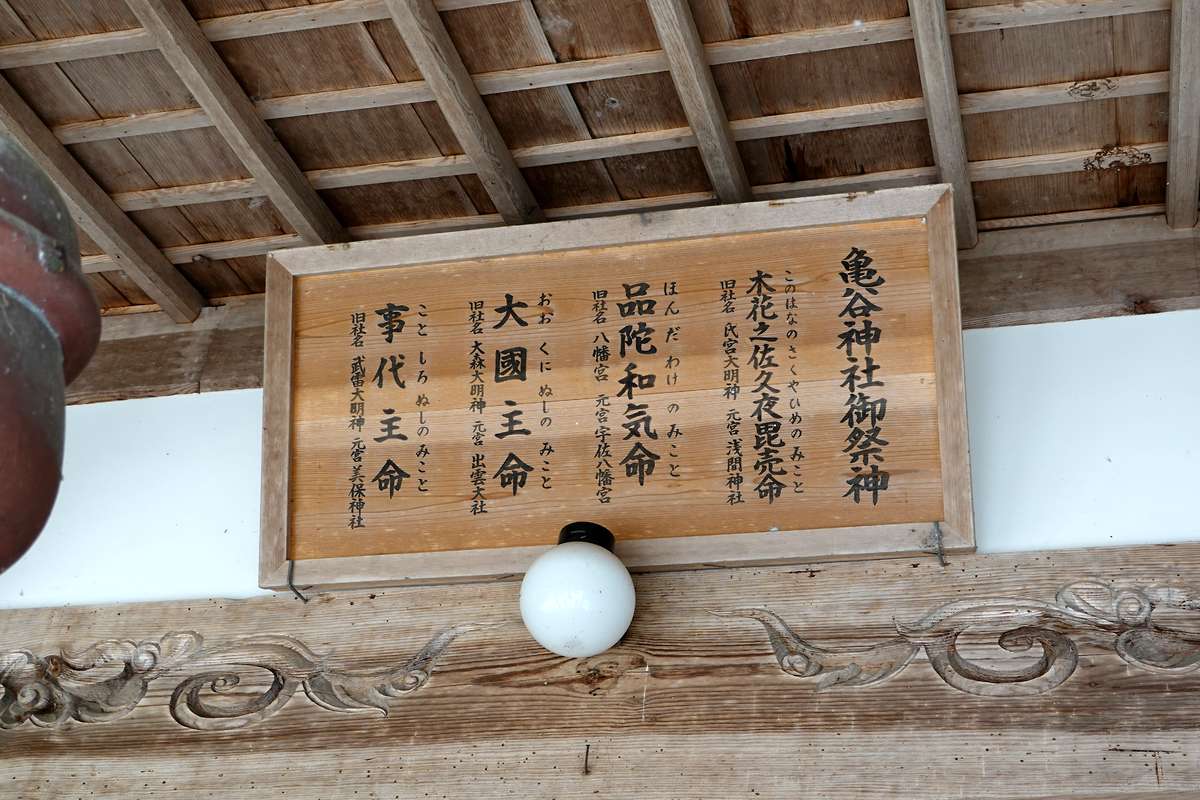 亀谷神社御祭神
このはなの さくやひめの みこと
木花之佐久夜毘売命
旧社名 氏宮大明神 元宮 浅間神社
ほんだ わけ の みこと
品陀和気命
旧社名 八幡宮 元宮 宇佐八幡宮
おお くに ぬしの みこと
大國主命
旧社名 大森大明神 元宮 出雲大社
こと しろ ぬしの みこと
事代主命
旧社名 武雷大明神 元宮 美保神社